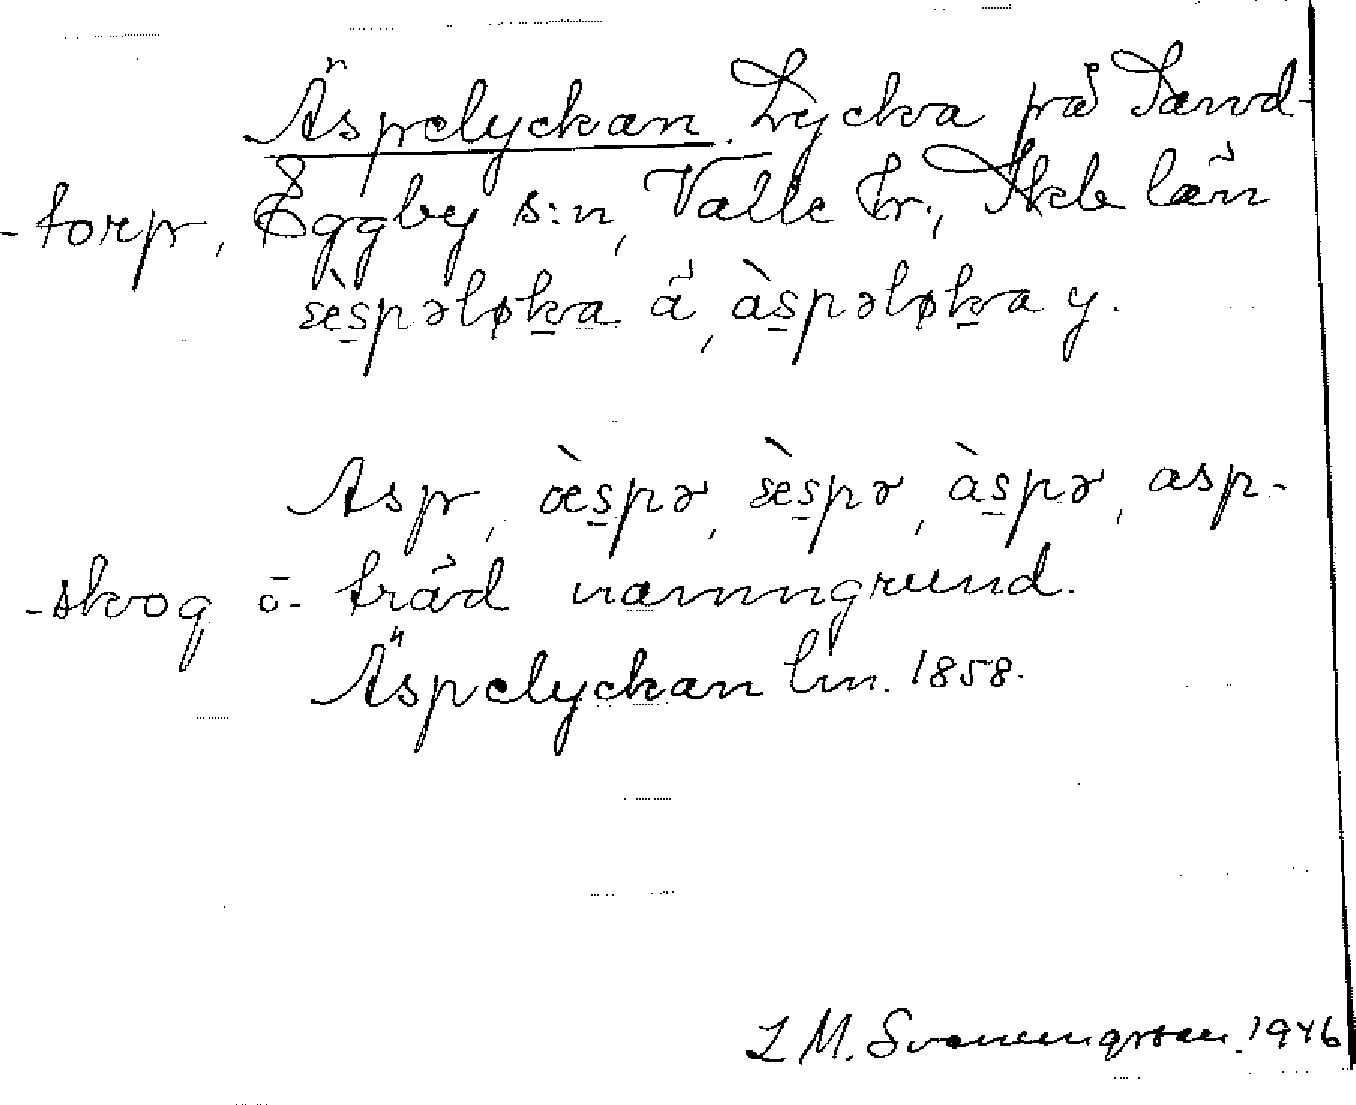 Äspelyckan. Lycka på Sand-
-torp, Eggby s:n, Valle hr., Skb län
æ̀spəløka ä, àspəløka y.
Asp, œ̀spə, æ̀spə, àspə, asp-
-skog o. träd namngrund.
Äspelyckan lm. 1858.
L M. Svanungsson. 1946